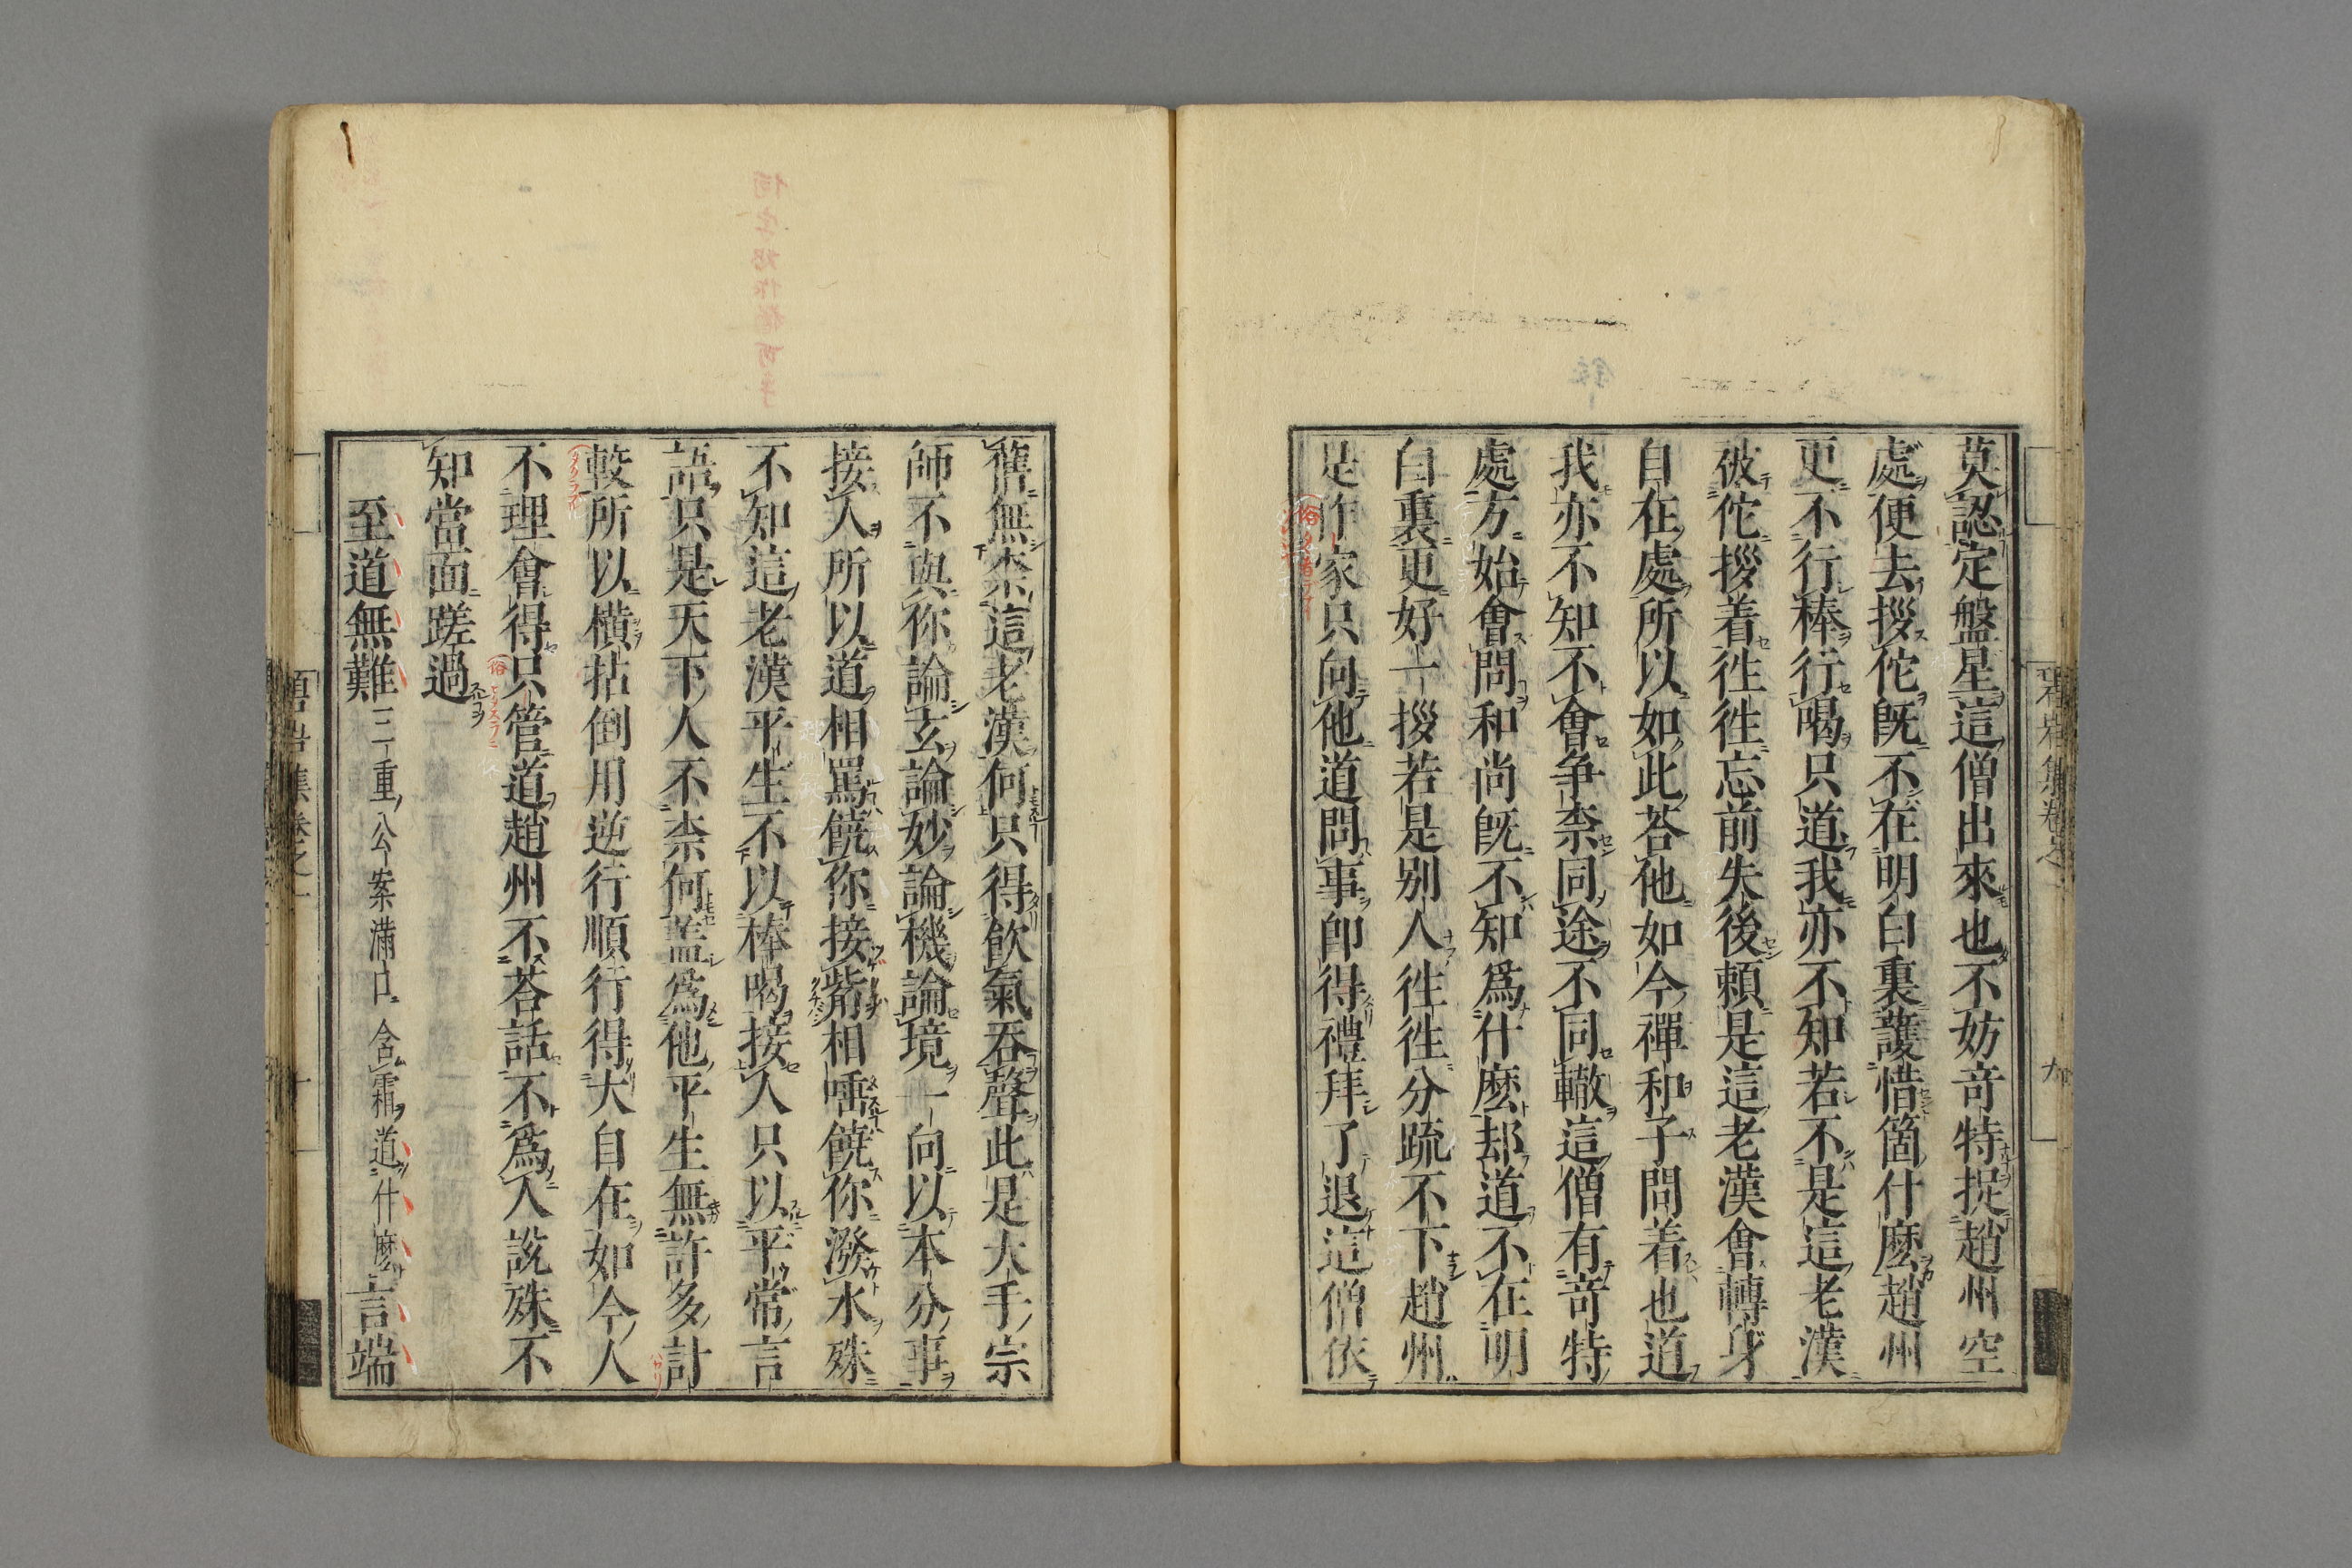 莫認定盤星這僧出來也不妨竒特捉趙州空
處便去拶佗既不在明白裏護惜箇什麽趙州
更不行棒行喝只道我亦不知若不是這老漢
被佗拶着徃徃忘前失後頼是這老漢會轉身
自在處所以如此荅他如今禪和子問着也道
我亦不知不會争柰同途不同轍這僧有竒特
處方始會問和尚既不知爲什麽却道不在明
白裏更好一拶若是别人徃徃分疏不下趙州
是作家只向他道問事即得禮拜了退這僧依
舊無柰這老漢何只得飲氣吞聲此是大手宗
師不與你論玄論妙論機論境一向以本分事
接人所以道相罵饒你接觜相唾饒你潑水殊
不知這老漢平生不以棒喝接人只以平常言
語只是天下人不柰何盖爲他平生無許多計
較所以横拈倒用逆行順行得大自在如今人
不理會得只管道趙州不荅話不爲人說殊不
知當面蹉過
至道無難三重公案滿口含霜道什麽言端